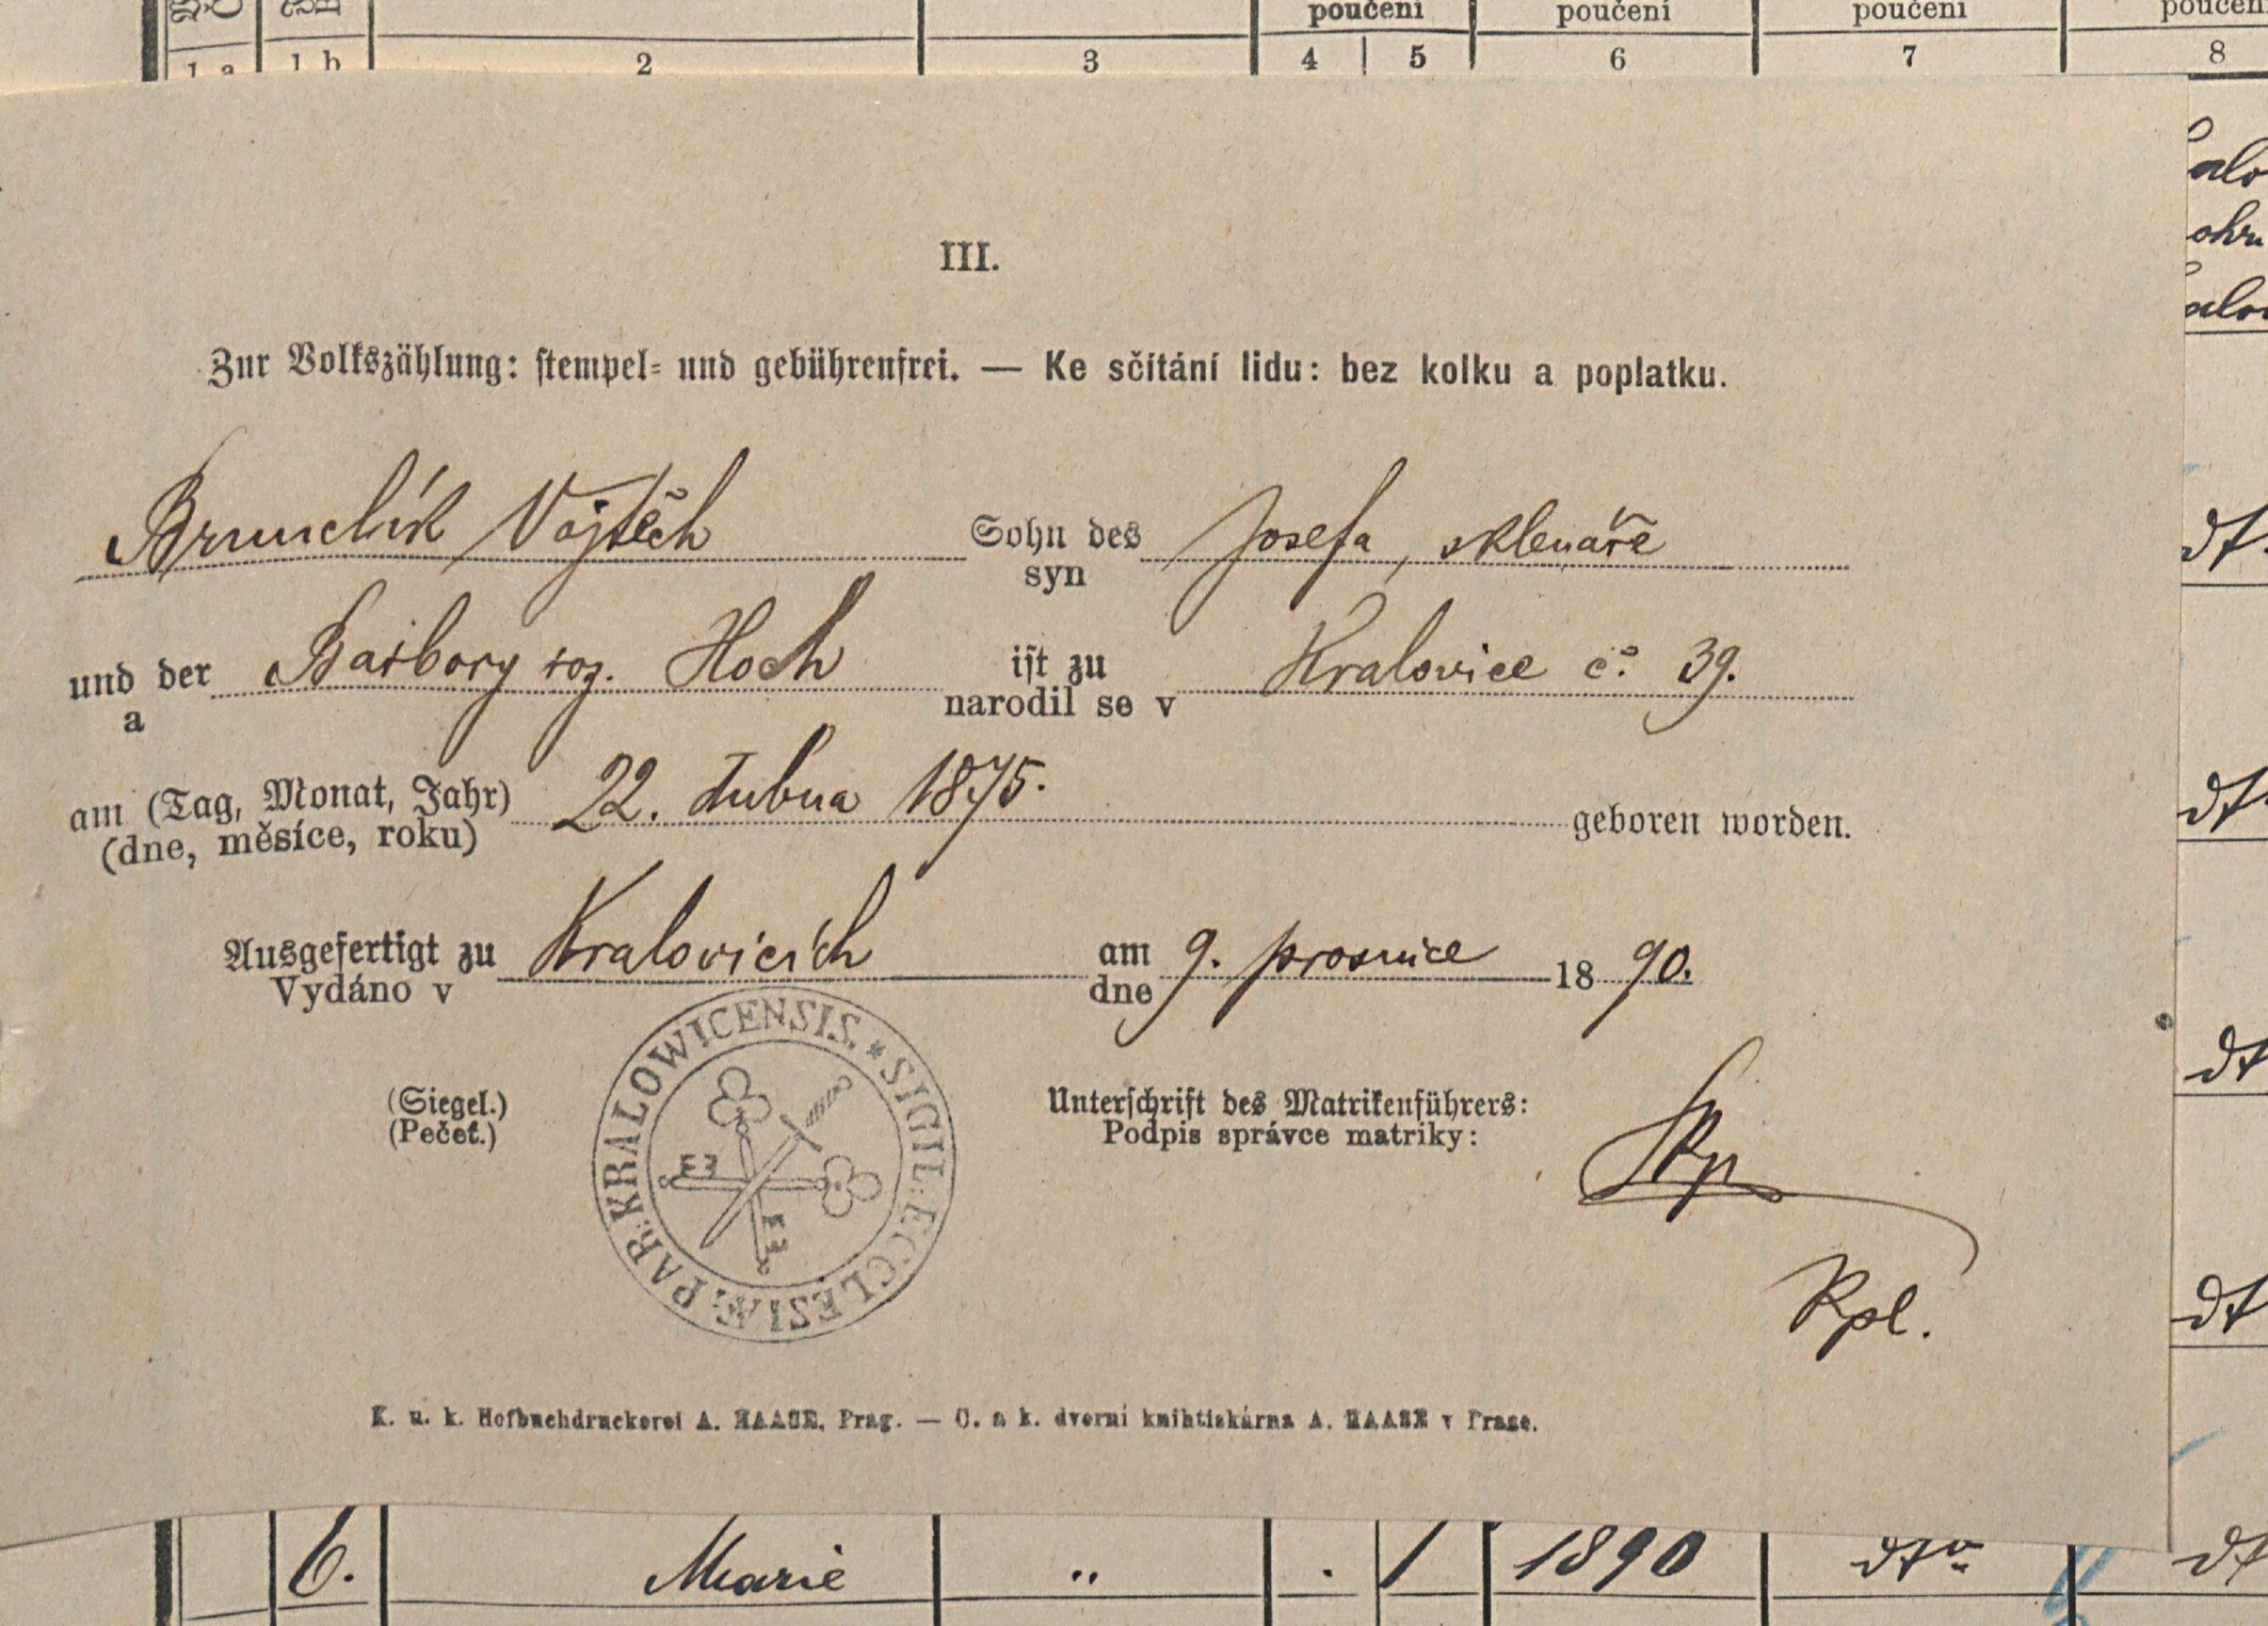 poučení poučení poučení
1 a 1 b 2 3 4 5 6 7 8
III.
Zur Volkszählung: stempel- und gebührenfrei. — Ke sčítání lidu: bez kolku a poplatku.
Brunclík Vojtěch Sohn des Josefa, sklenáře
syn
und der Barbory roz. Hoch ist zu Kralovice č. 39.
a narodil se v
am (Tag, Monat, Jahr) 22. dubna 1875. geboren worden.
(dne, měsíce, roku)
Ausgefertigt zu Kralovicích am 9. prosince 1890.
Vydáno v dne
PAR: KRALOWICENSIS. * SIGIL: ECCLESIÆ:
(Siegel.) Unterschrift des Matrikenführers:
(Pečeť.) Podpis správce matriky:
Kpl.
K. u. k. Hofbuchdruckerei A. HAASE, Prag. — C. a k. dvorní knihtiskárna A. HAASE v Praze.
6. Marie " . 1 1890 dto